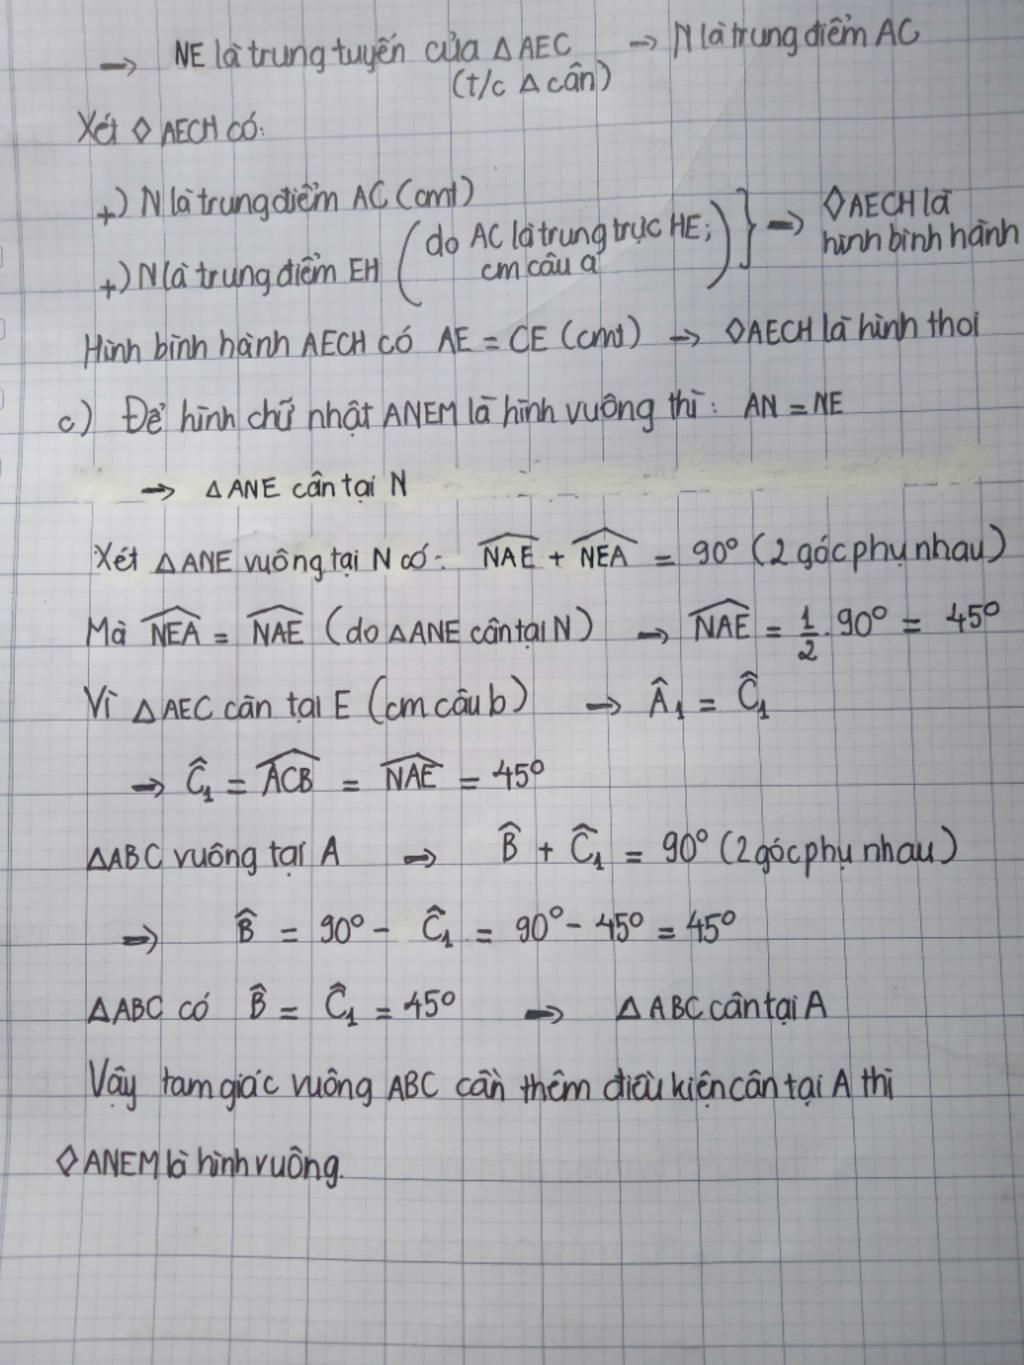 → NE là trung tuyến của △AEC → N là trung điểm AC
(t/c △ cân)
Xét ◊ AECH có:
+) N là trung điểm AC (cmt)
+) N là trung điểm EH (do AC là trung trực HE; cm câu a) } → ◊AECH là hình bình hành
Hình bình hành AECH có AE = CE (cmt) → ◊AECH là hình thoi
c) Để hình chữ nhật ANEM là hình vuông thì: AN = NE
→ △ANE cân tại N
Xét △ANE vuông tại N có: \widehat{NAE} + \widehat{NEA} = 90° (2 góc phụ nhau)
Mà \widehat{NEA} = \widehat{NAE} (do △ANE cân tại N) → \widehat{NAE} = 1/2 . 90° = 45°
Vì △AEC cân tại E (cm câu b) → Â₁ = Ĉ₁
→ Ĉ₁ = \widehat{ACB} = \widehat{NAE} = 45°
△ABC vuông tại A → B̂ + Ĉ₁ = 90° (2 góc phụ nhau)
→ B̂ = 90° - Ĉ₁ = 90° - 45° = 45°
△ABC có B̂ = Ĉ₁ = 45° → △ABC cân tại A
Vậy tam giác vuông ABC cần thêm điều kiện cân tại A thì
◊ANEM là hình vuông.